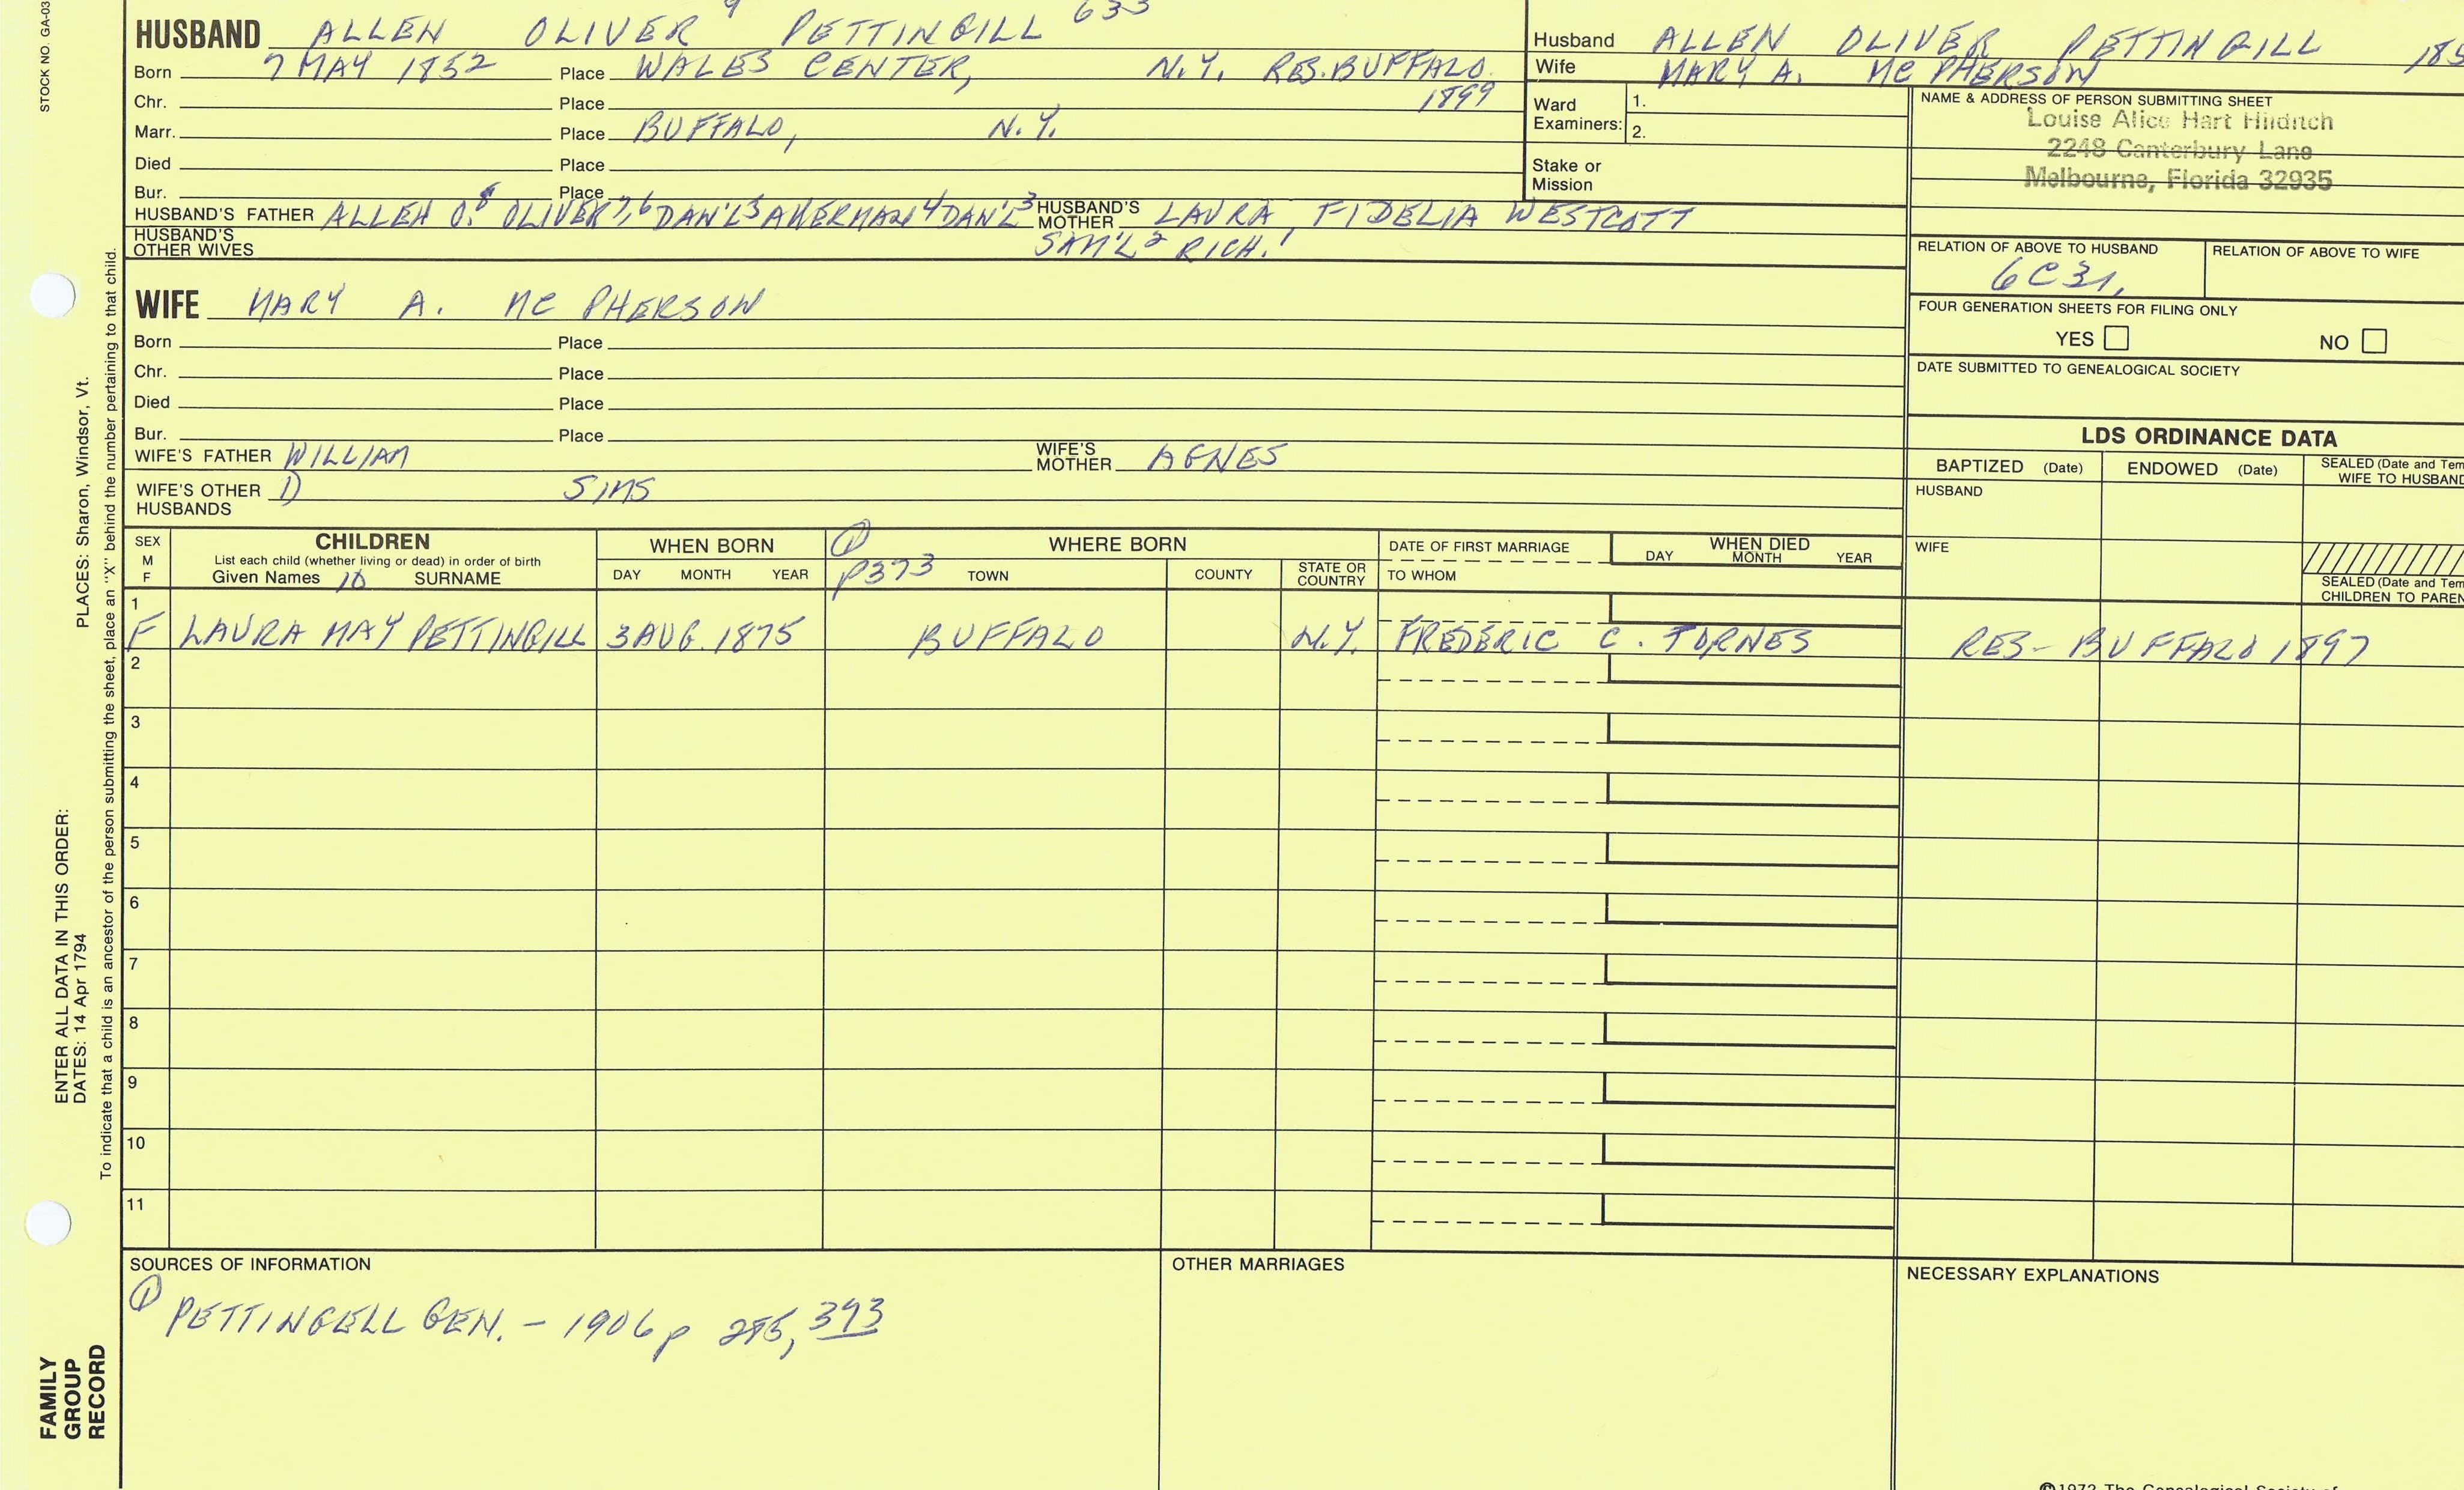 STOCK NO. GA-03
HUSBAND ALLEN OLIVER 9 PETTINGILL 633
Born 7 MAY 1852 Place WALES CENTER, N.Y. RES. BUFFALO 1899
Chr. Place
Marr. Place BUFFALO, N.Y.
Died Place
Bur. Place
HUSBAND'S FATHER ALLEN O.8 OLIVER 7,6 DAN'L 5 AKERMAN 4 DAN'L 3 HUSBAND'S MOTHER LAURA FIDELIA WESTCOTT
HUSBAND'S OTHER WIVES SAM'L 2 RICH. 1
WIFE MARY A. MC PHERSON
Born Place
Chr. Place
Died Place
Bur. Place
WIFE'S FATHER WILLIAM WIFE'S MOTHER AGNES
WIFE'S OTHER HUSBANDS 1) SIMS
Husband ALLEN OLIVER PETTINGILL 185
Wife MARY A. MC PHERSON
Ward Examiners: 1.
2.
Stake or Mission
NAME & ADDRESS OF PERSON SUBMITTING SHEET
Louise Alice Hart Hilditch
2248 Canterbury Lane
Melbourne, Florida 32935
RELATION OF ABOVE TO HUSBAND RELATION OF ABOVE TO WIFE
6C3r,
FOUR GENERATION SHEETS FOR FILING ONLY
YES NO
DATE SUBMITTED TO GENEALOGICAL SOCIETY
LDS ORDINANCE DATA
BAPTIZED (Date) ENDOWED (Date) SEALED (Date and Tem
WIFE TO HUSBAND
HUSBAND
WIFE
SEALED (Date and Tem
CHILDREN TO PAREN
SEX M F CHILDREN WHEN BORN ① WHERE BORN DATE OF FIRST MARRIAGE WHEN DIED
List each child (whether living or dead) in order of birth
Given Names 10 SURNAME DAY MONTH YEAR p373 TOWN COUNTY STATE OR COUNTRY TO WHOM DAY MONTH YEAR
1
F LAURA MAY PETTINGILL 3 AUG. 1875 BUFFALO N.Y. FREDERIC C. TORNES RES- BUFFALO 1897
2
3
4
5
6
7
8
9
10
11
SOURCES OF INFORMATION OTHER MARRIAGES NECESSARY EXPLANATIONS
①
PETTINGELL GEN. - 1906 p 393
PLACES: Sharon, Windsor, Vt.
ENTER ALL DATA IN THIS ORDER:
DATES: 14 Apr 1794
To indicate that a child is an ancestor of the person submitting the sheet, place an "X" behind the number pertaining to that child.
FAMILY
GROUP
RECORD
©1972 The Genealogical Society of